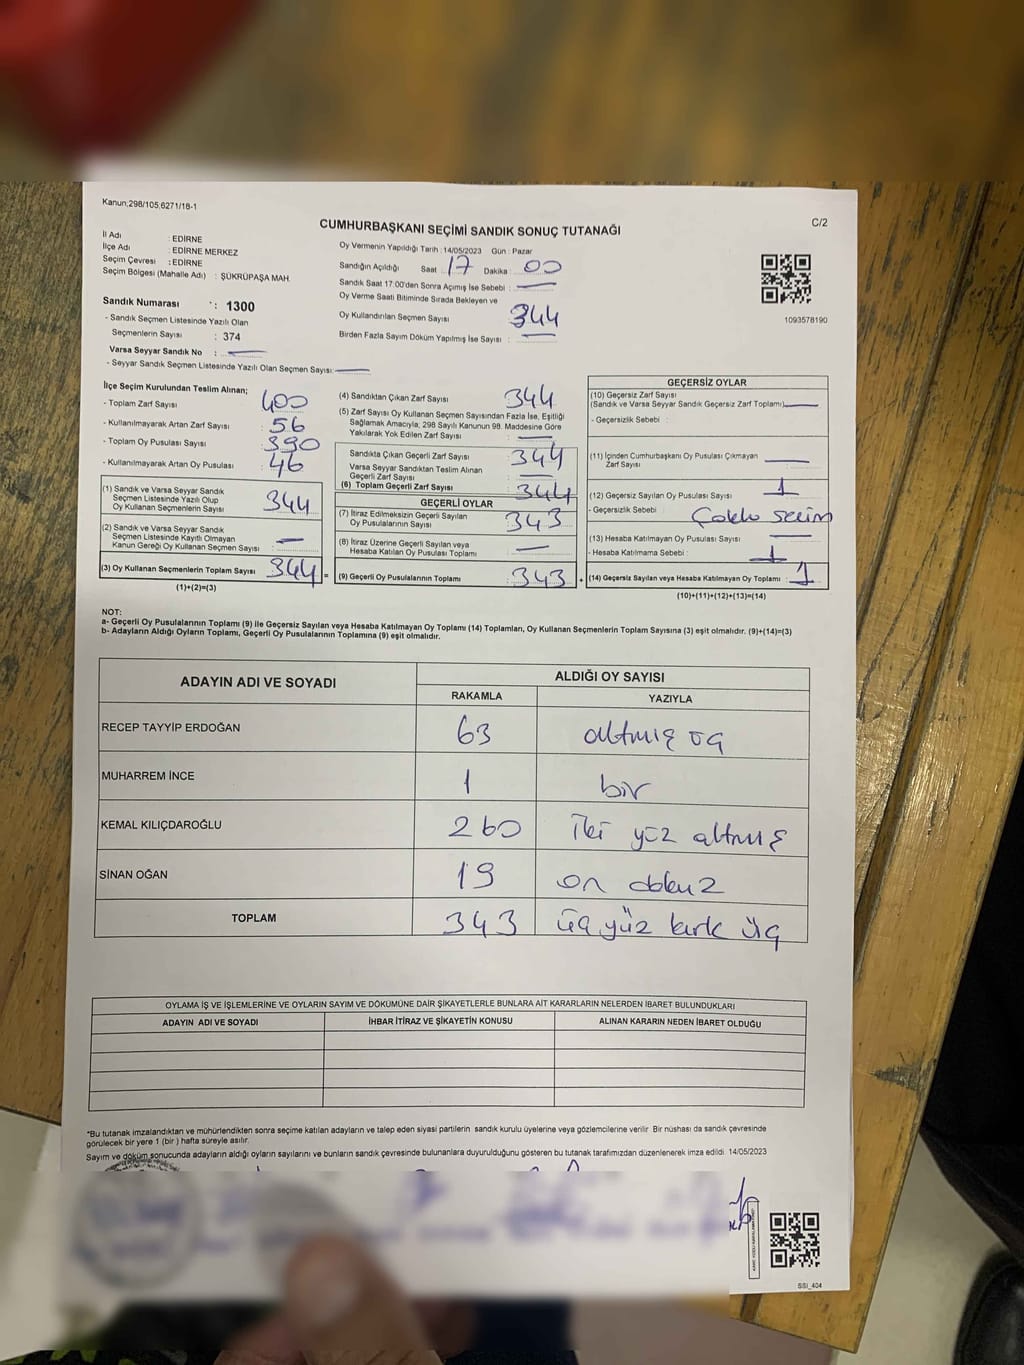 Kanun;298/105,6271/18-1
C/2
CUMHURBAŞKANI SEÇİMİ SANDIK SONUÇ TUTANAĞI
İl Adı : EDİRNE
İlçe Adı : EDİRNE MERKEZ
Seçim Çevresi : EDİRNE
Seçim Bölgesi (Mahalle Adı) : ŞÜKRÜPAŞA MAH.
Sandık Numarası : 1300
- Sandık Seçmen Listesinde Yazılı Olan
Seçmenlerin Sayısı : 374
Varsa Seyyar Sandık No :
- Seyyar Sandık Seçmen Listesinde Yazılı Olan Seçmen Sayısı:
Oy Vermenin Yapıldığı Tarih :14/05/2023 Gün : Pazar
Sandığın Açıldığı Saat 17 Dakika : 00
Sandık Saat 17.00'den Sonra Açımış İse Sebebi :
Oy Verme Saati Bitiminde Sırada Bekleyen ve
Oy Kullandırılan Seçmen Sayısı 344
Birden Fazla Sayım Döküm Yapılmış İse Sayısı :
1093578190
İlçe Seçim Kurulundan Teslim Alınan;
- Toplam Zarf Sayısı 400
- Kullanılmayarak Artan Zarf Sayısı : 56
- Toplam Oy Pusulası Sayısı : 390
- Kullanılmayarak Artan Oy Pusulası : 46
(1) Sandık ve Varsa Seyyar Sandık
Seçmen Listesinde Yazılı Olup
Oy Kullanan Seçmenlerin Sayısı 344
(2) Sandık ve Varsa Seyyar Sandık
Seçmen Listesinde Kayıtlı Olmayan
Kanun Gereği Oy Kullanan Seçmen Sayısı :
(3) Oy Kullanan Seçmenlerin Toplam Sayısı 344 =
(1)+(2)=(3)
(4) Sandıktan Çıkan Zarf Sayısı 344
(5) Zarf Sayısı Oy Kullanan Seçmen Sayısından Fazla İse, Eşitliği
Sağlamak Amacıyla; 298 Sayılı Kanunun 98. Maddesine Göre
Yakılarak Yok Edilen Zarf Sayısı :
Sandıkta Çıkan Geçerli Zarf Sayısı 344
Varsa Seyyar Sandıktan Teslim Alınan
Geçerli Zarf Sayısı :
(6) Toplam Geçerli Zarf Sayısı 344
GEÇERLİ OYLAR
(7) İtiraz Edilmeksizin Geçerli Sayılan
Oy Pusulalarının Sayısı : 343
(8) İtiraz Üzerine Geçerli Sayılan veya
Hesaba Katılan Oy Pusulası Toplamı
(9) Geçerli Oy Pusulalarının Toplamı : 343 +
GEÇERSİZ OYLAR
(10) Geçersiz Zarf Sayısı
(Sandık ve Varsa Seyyar Sandık Geçersiz Zarf Toplamı)
- Geçersizlik Sebebi :
(11) İçinden Cumhurbaşkanı Oy Pusulası Çıkmayan
Zarf Sayısı
(12) Geçersiz Sayılan Oy Pusulası Sayısı 1
- Geçersizlik Sebebi : Çoklu secim
(13) Hesaba Katılmayan Oy Pusulası Sayısı
- Hesaba Katılmama Sebebi : 1
(14) Geçersiz Sayılan veya Hesaba Katılmayan Oy Toplamı : 1
(10)+(11)+(12)+(13)=(14)
NOT:
a- Geçerli Oy Pusulalarının Toplamı (9) ile Geçersiz Sayılan veya Hesaba Katılmayan Oy Toplamı (14) Toplamları, Oy Kullanan Seçmenlerin Toplam Sayısına (3) eşit olmalıdır. (9)+(14)=(3)
b- Adayların Aldığı Oyların Toplamı, Geçerli Oy Pusulalarının Toplamına (9) eşit olmalıdır.
ADAYIN ADI VE SOYADI
ALDIĞI OY SAYISI
RAKAMLA YAZIYLA
RECEP TAYYİP ERDOĞAN 63 altmış üç
MUHARREM İNCE 1 bir
KEMAL KILIÇDAROĞLU 260 İki yüz altmış
SİNAN OĞAN 19 on dokuz
TOPLAM 343 üç yüz kırk üç
OYLAMA İŞ VE İŞLEMLERİNE VE OYLARIN SAYIM VE DÖKÜMÜNE DAİR ŞİKAYETLERLE BUNLARA AİT KARARLARIN NELERDEN İBARET BULUNDUKLARI
ADAYIN ADI VE SOYADI İHBAR İTİRAZ VE ŞİKAYETİN KONUSU ALINAN KARARIN NEDEN İBARET OLDUĞU
*Bu tutanak imzalandıktan ve mühürlendikten sonra seçime katılan adayların ve talep eden siyasi partilerin sandık kurulu üyelerine veya gözlemcilerine verilir. Bir nüshası da sandık çevresinde
görülecek bir yere 1 (bir ) hafta süreyle asılır.
Sayım ve döküm sonucunda adayların aldığı oyların sayılarını ve bunların sandık çevresinde bulunanlara duyurulduğunu gösteren bu tutanak tarafımızdan düzenlenerek imza edildi. 14/05/2023
SSI_404